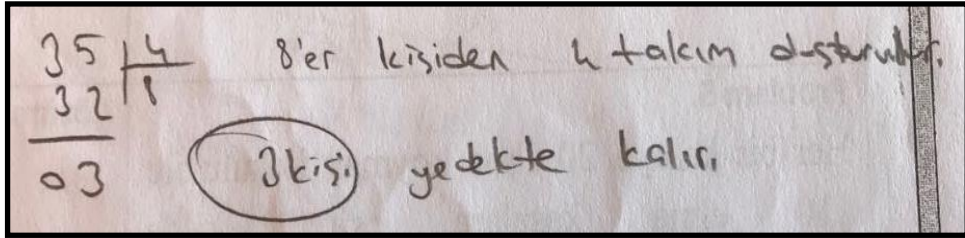 35 | 4 8'er kişiden 4 takım oluşturulur.
32 | 8
03 3 kişi yedekte kalır.